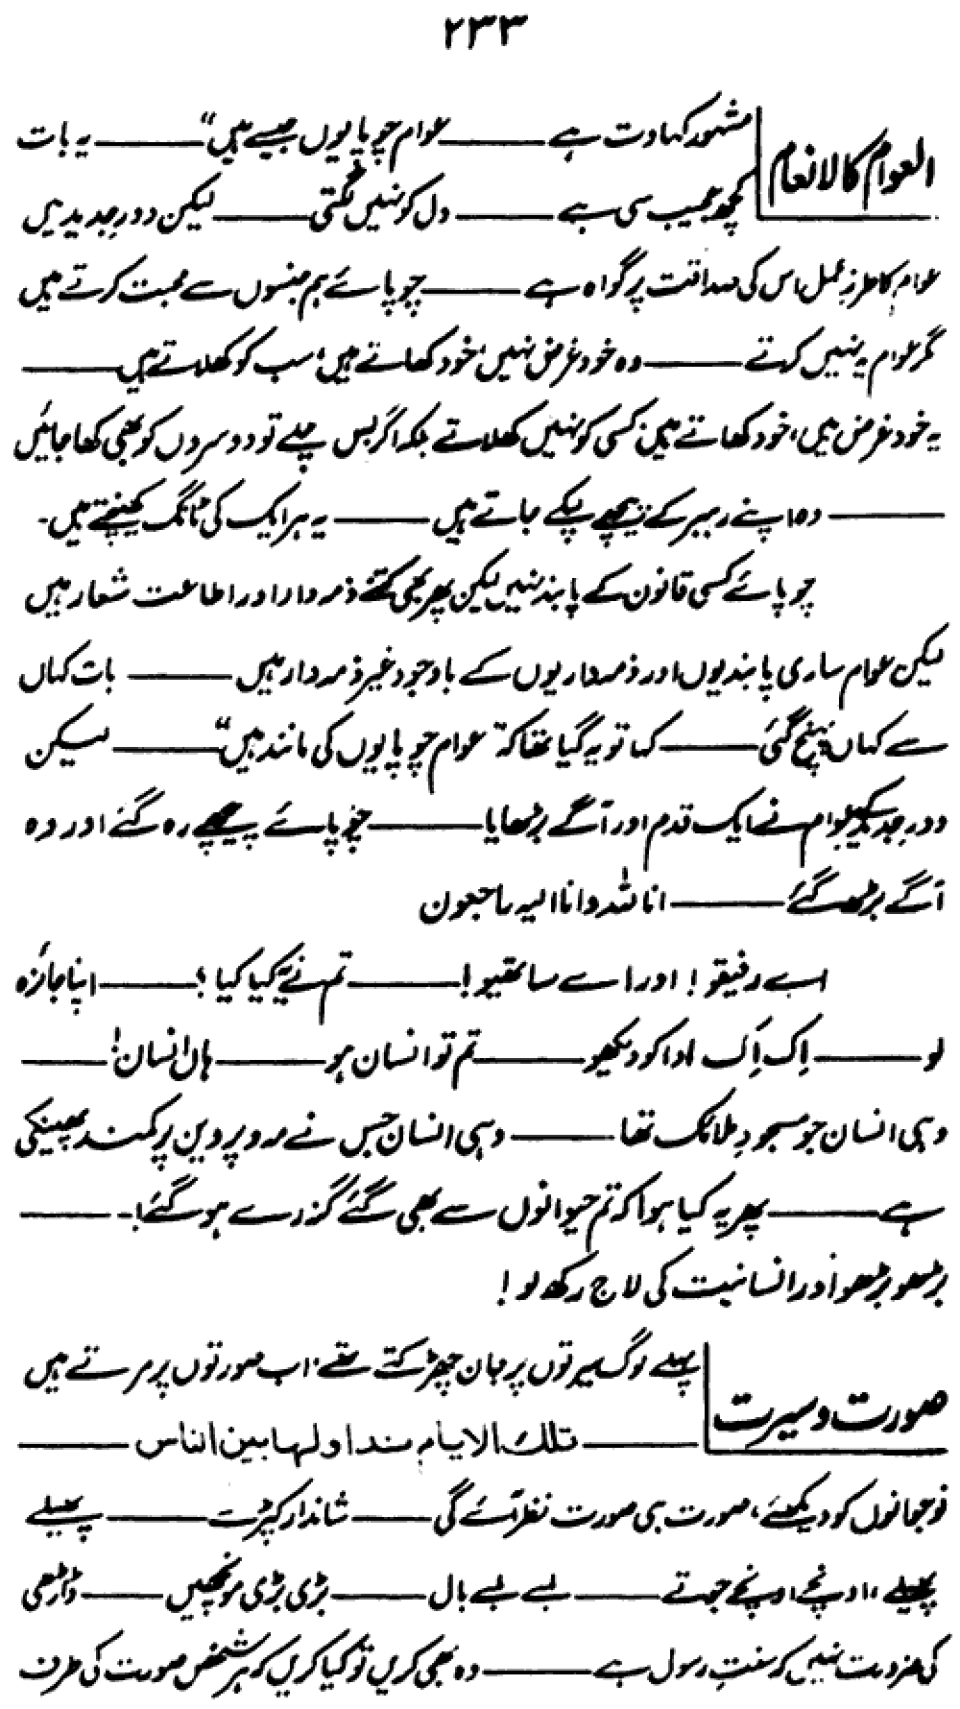 ۲۳۳
العوام کالانعام
مشہور کہاوت ہے ——— عوام چوپایوں جیسے ہیں" ——— یہ بات
کچھ عجیب سی ہے ——— دل کو نہیں لگتی ——— لیکن دورِ جدید میں
عوام کا طرزِ عمل اس کی صداقت پر گواہ ہے ——— چوپائے ہم جنسوں سے محبت کرتے ہیں
مگر عوام یہ نہیں کرتے ——— وہ خود غرض نہیں، خود کھاتے ہیں، سب کو کھلاتے ہیں ———
یہ خود غرض ہیں، خود کھاتے ہیں، کسی کو نہیں کھلاتے بلکہ اگر بس چلے تو دوسروں کو بھی کھا جائیں
——— وہ اپنے رہبر کے پیچھے لپکے جاتے ہیں ——— یہ ہر ایک کی ٹانگ کھینچتے ہیں۔
چوپائے کسی قانون کے پابند نہیں لیکن پھر بھی کتنے ذمہ دار اور اطاعت شعار ہیں
لیکن عوام ساری پابندیوں اور ذمہ داریوں کے باوجود غیر ذمہ دار ہیں ——— بات کہاں
سے کہاں پہنچ گئی ——— کہا تو یہ گیا تھا کہ "عوام چوپایوں کی مانند ہیں" ——— لیکن
دورِ جدید کے عوام نے ایک قدم اور آگے بڑھایا ——— چوپائے پیچھے رہ گئے اور وہ
آگے بڑھ گئے ——— انا للہ وانا الیہ راجعون
اے رفیقو! اور اے ساتھیو! ——— تم نے یہ کیا کیا؟ ——— اپنا جائزہ
لو ——— اِک اِک ادا کو دیکھو ——— تم تو انسان ہو ——— ہاں انسان! ———
وہی انسان جو مسجودِ ملائک تھا ——— وہی انسان جس نے مہ و پروین پر کمند پھینکی
ہے ——— پھر یہ کیا ہوا کہ تم حیوانوں سے بھی گئے گزرے ہو گئے!۔ ———
بڑھو بڑھو اور انسانیت کی لاج رکھ لو!
صورت و سیرت
پہلے لوگ سیرتوں پر جان چھڑکتے تھے، اب صورتوں پر مرتے ہیں
——— تلك الایام نداولها بین الناس ———
نوجوانوں کو دیکھئے، صورت ہی صورت نظر آئے گی ——— شاندار کپڑے ——— پھیلے
پھیلے، اونچے اونچے جوتے ——— لمبے لمبے بال ——— بڑی بڑی مونچھیں ——— داڑھی
کی ضرورت نہیں کہ سنتِ رسول ہے ——— وہ بھی کریں تو کیا کریں کہ ہر شخص صورت کی طرف